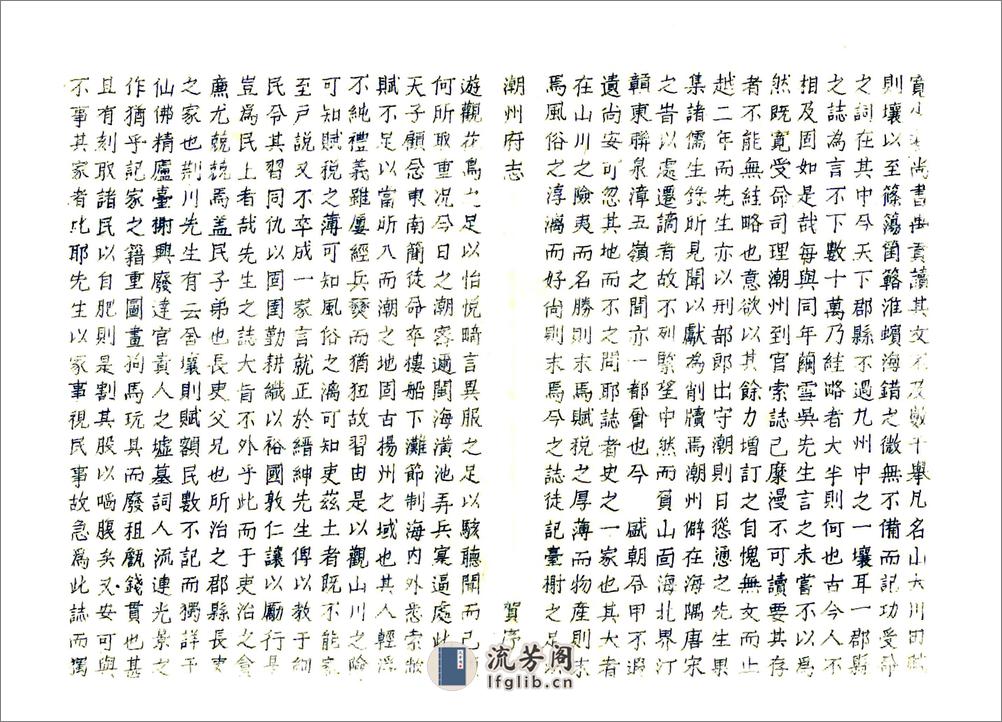 尚書禹貢讀其文不及數千舉凡名山大川田賦
則壤以至篠簜箘簵淮蠙海錯之微無不備而記功受爵
之詞在其中今天下郡縣不過九州中之一壤耳一郡縣
之誌為言不下數十萬乃絓略者大半則何也古今人不
相及固如是哉每與同年繭雪吳先生言之未嘗不以為
然既寬受命司理潮州到官索誌已糜漫不可讀要其存
者不能無絓略也意欲以其餘力增訂之自愧無文而止
越二年而先生亦以刑部郎出守潮則日慫通之先生果
集諸儒生錄所見聞以獻為削牘焉潮州僻在海隅唐宋
之旹以處遷謫者故不列緊望中然而負山面海北界汀
贛東聯泉漳五嶺之間亦一都會也今 盛朝令甲不遐
遺尚安可忽其地而不之問耶誌者史之一家也其大者
在山川之險夷而名勝則末焉賦稅之厚薄而物產則末
焉風俗之淳漓而好尚則末焉今之誌徒記臺榭之足
潮州府志
賀序
遊觀花鳥之足以怡悅畸言異服之足以駭聽聞而已
何所取重況今日之潮容邇閩海潢池弄兵寡逼處此
天子顧念東南簡徒命卒樓船下灘節制海內外悉索敝
賦不足以當所入而潮之地固古揚州之域也其人輕
不純禮義雖屢經兵燹而猶狃故習由是以觀山川之險
可知賦稅之薄可知風俗之漓可知吏茲土者既不能家
至戸說又不卒成一家言就正於縉紳先生俾以教于細
民令其習同仇以固圉勤耕織以裕國敦仁讓以勵行其
豈為民上者哉先生之誌大肯不外乎此而于吏治之貪
廉尤兢兢焉盖民子弟也長吏父兄也所治之郡縣長吏
之家也荆川先生有云畨壤則賦額民數不記而獨詳于
仙佛精廬臺榭興廢達官貴人之墟墓詞人流連光景之
作猶乎記家之籍重圖畫狗馬玩具而廢租甔錢貫也甚
且有刻取諸民以自肥則是割其股以啗腹矣又安可與
不事其家者比耶先生以家事視民事故急為此誌而獨
流芳阁
lfglib.cn